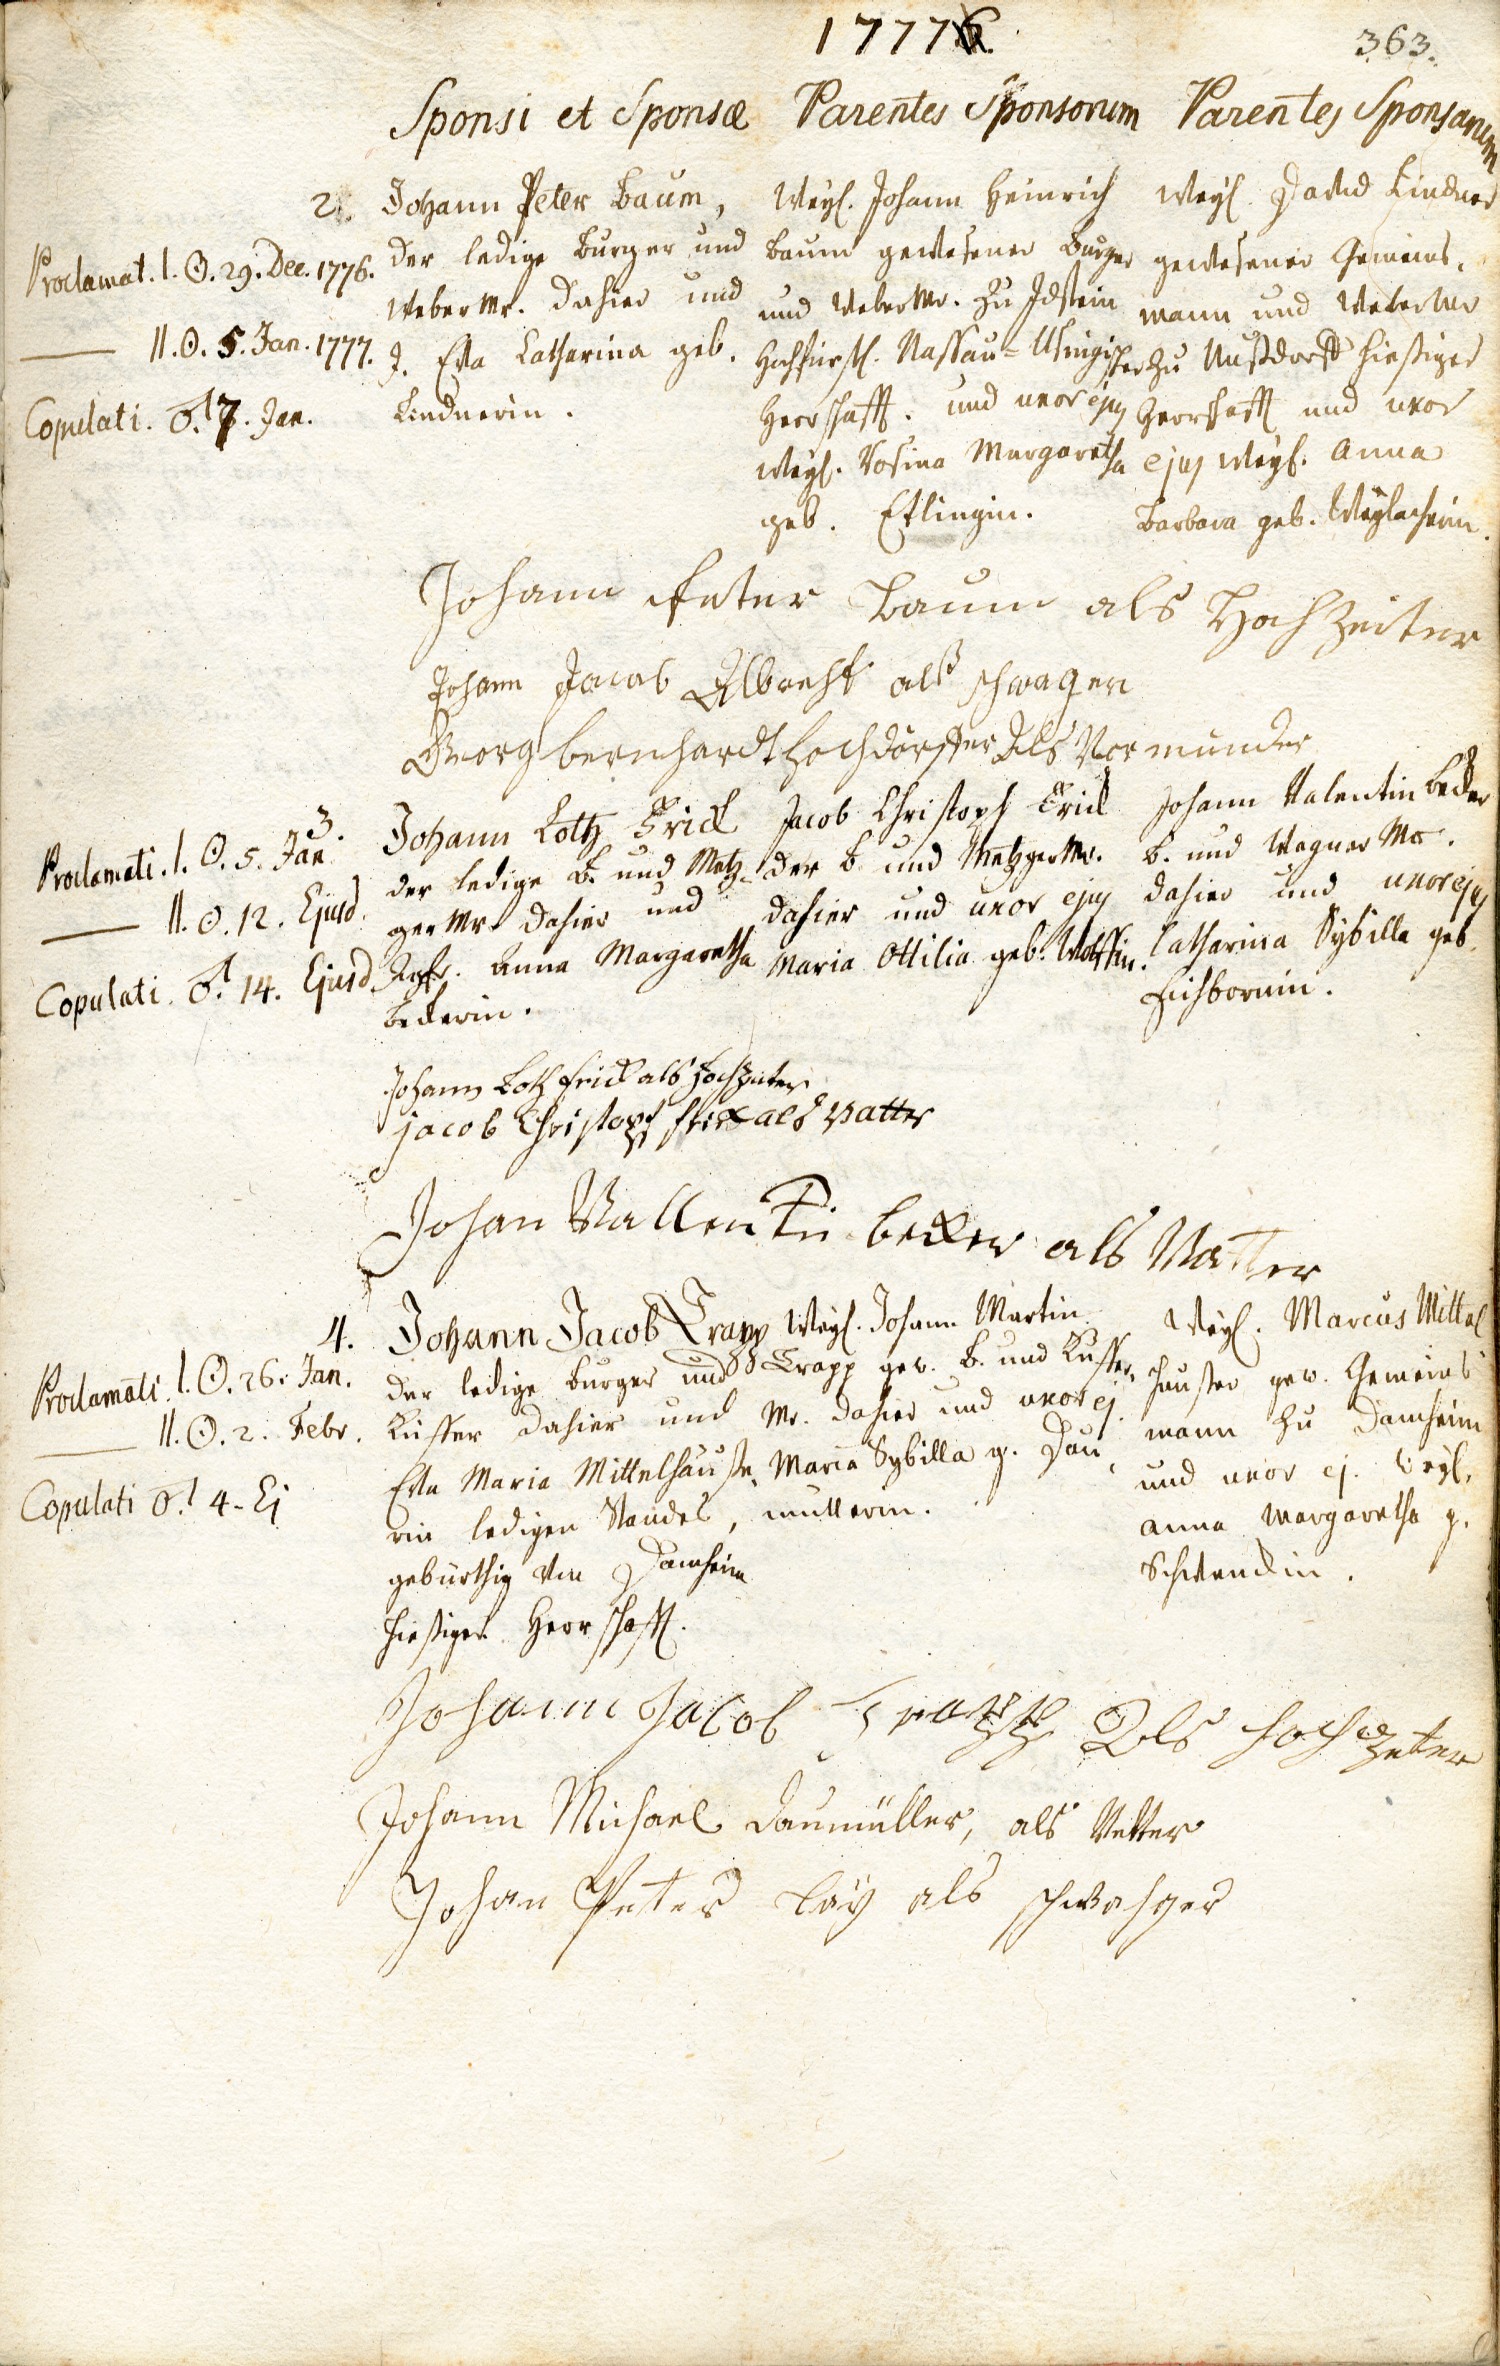 1777
363.
Sponsi et Sponsæ
Parentes Sponsorum
Parentes Sponsarum
2.
Proclamat. I. ☉. 29. Dec. 1776.
II. ☉. 5. Jan. 1777.
Copulati. ♂. 7. Jan.
Johann Peter Baum,
der ledige Burger und
Weber Mr. dahier und
J. Eva Catharina geb.
Lindnerin.
Weyl. Johann Heinrich
Baum gewesener Burger
und Weber Mr. zu Idstein
Hochfürstl. Nassau-Usingischer
Herrschafft. und uxor ejus
Weyl. Rosina Margaretha
geb. Etlingin.
Weyl. David Lindner
gewesener Gemeins-
mann und Weber Mr
zu Nußdorff hießiger
Herrschafft und uxor
ejus Weyl. Anna
Barbara geb.
Johann Peter Baum als Hochzeiter
Johann Jacob Albrecht alß schwager
Georg bernhardt Hochdörffer Als Vormunder
3.
Proclamati. I. ☉. 5. Jan
II. ☉. 12. Ejusd.
Copulati. ♂. 14. Ejusd.
Johann Lotz Frick
der ledige B. und Metz-
ger Mr. dahier und
Jgfr. Anna Margaretha
Beckerin.
Jacob Christoph Frick
der B. und Metzger Mr.
dahier und uxor ejus
Maria Ottilia geb. Wolffin.
Johann Valentin Becker
B. und Wagner Mr.
dahier und uxor ejus
Catharina Sybilla geb.
Eichbornin.
Johann Lotz frick als Hochzeiter
jacob Christoph frick als Vatter
Johan Vallentin becker als Vatter
4.
Proclamati. I. ☉. 26. Jan.
II. ☉. 2. Febr.
Copulati ♂. 4. Ej
Johann Jacob Trapp
der ledige Burger und
Kuffer dahier und
Eva Maria Mittelhäuße-
rin ledigen Standes,
geburthig von Damheim
hießiger Herrschafft.
Weyl. Johann Martin
Trapp gew. B. und Kuffer-
Mr. dahier und uxor ej.
Maria Sybilla g. Dau-
mullerin.
Weyl. Marcus Mittel
häußer gew. Gemeins
mann zu Damheim
und uxor ej. Weyl.
Anna Margaretha g.
Schwendin.
Johann Jacob Trapp Als hochzeter
Johann Michael Daumüller, als Vetter
Johan Peter Lay als schwahger